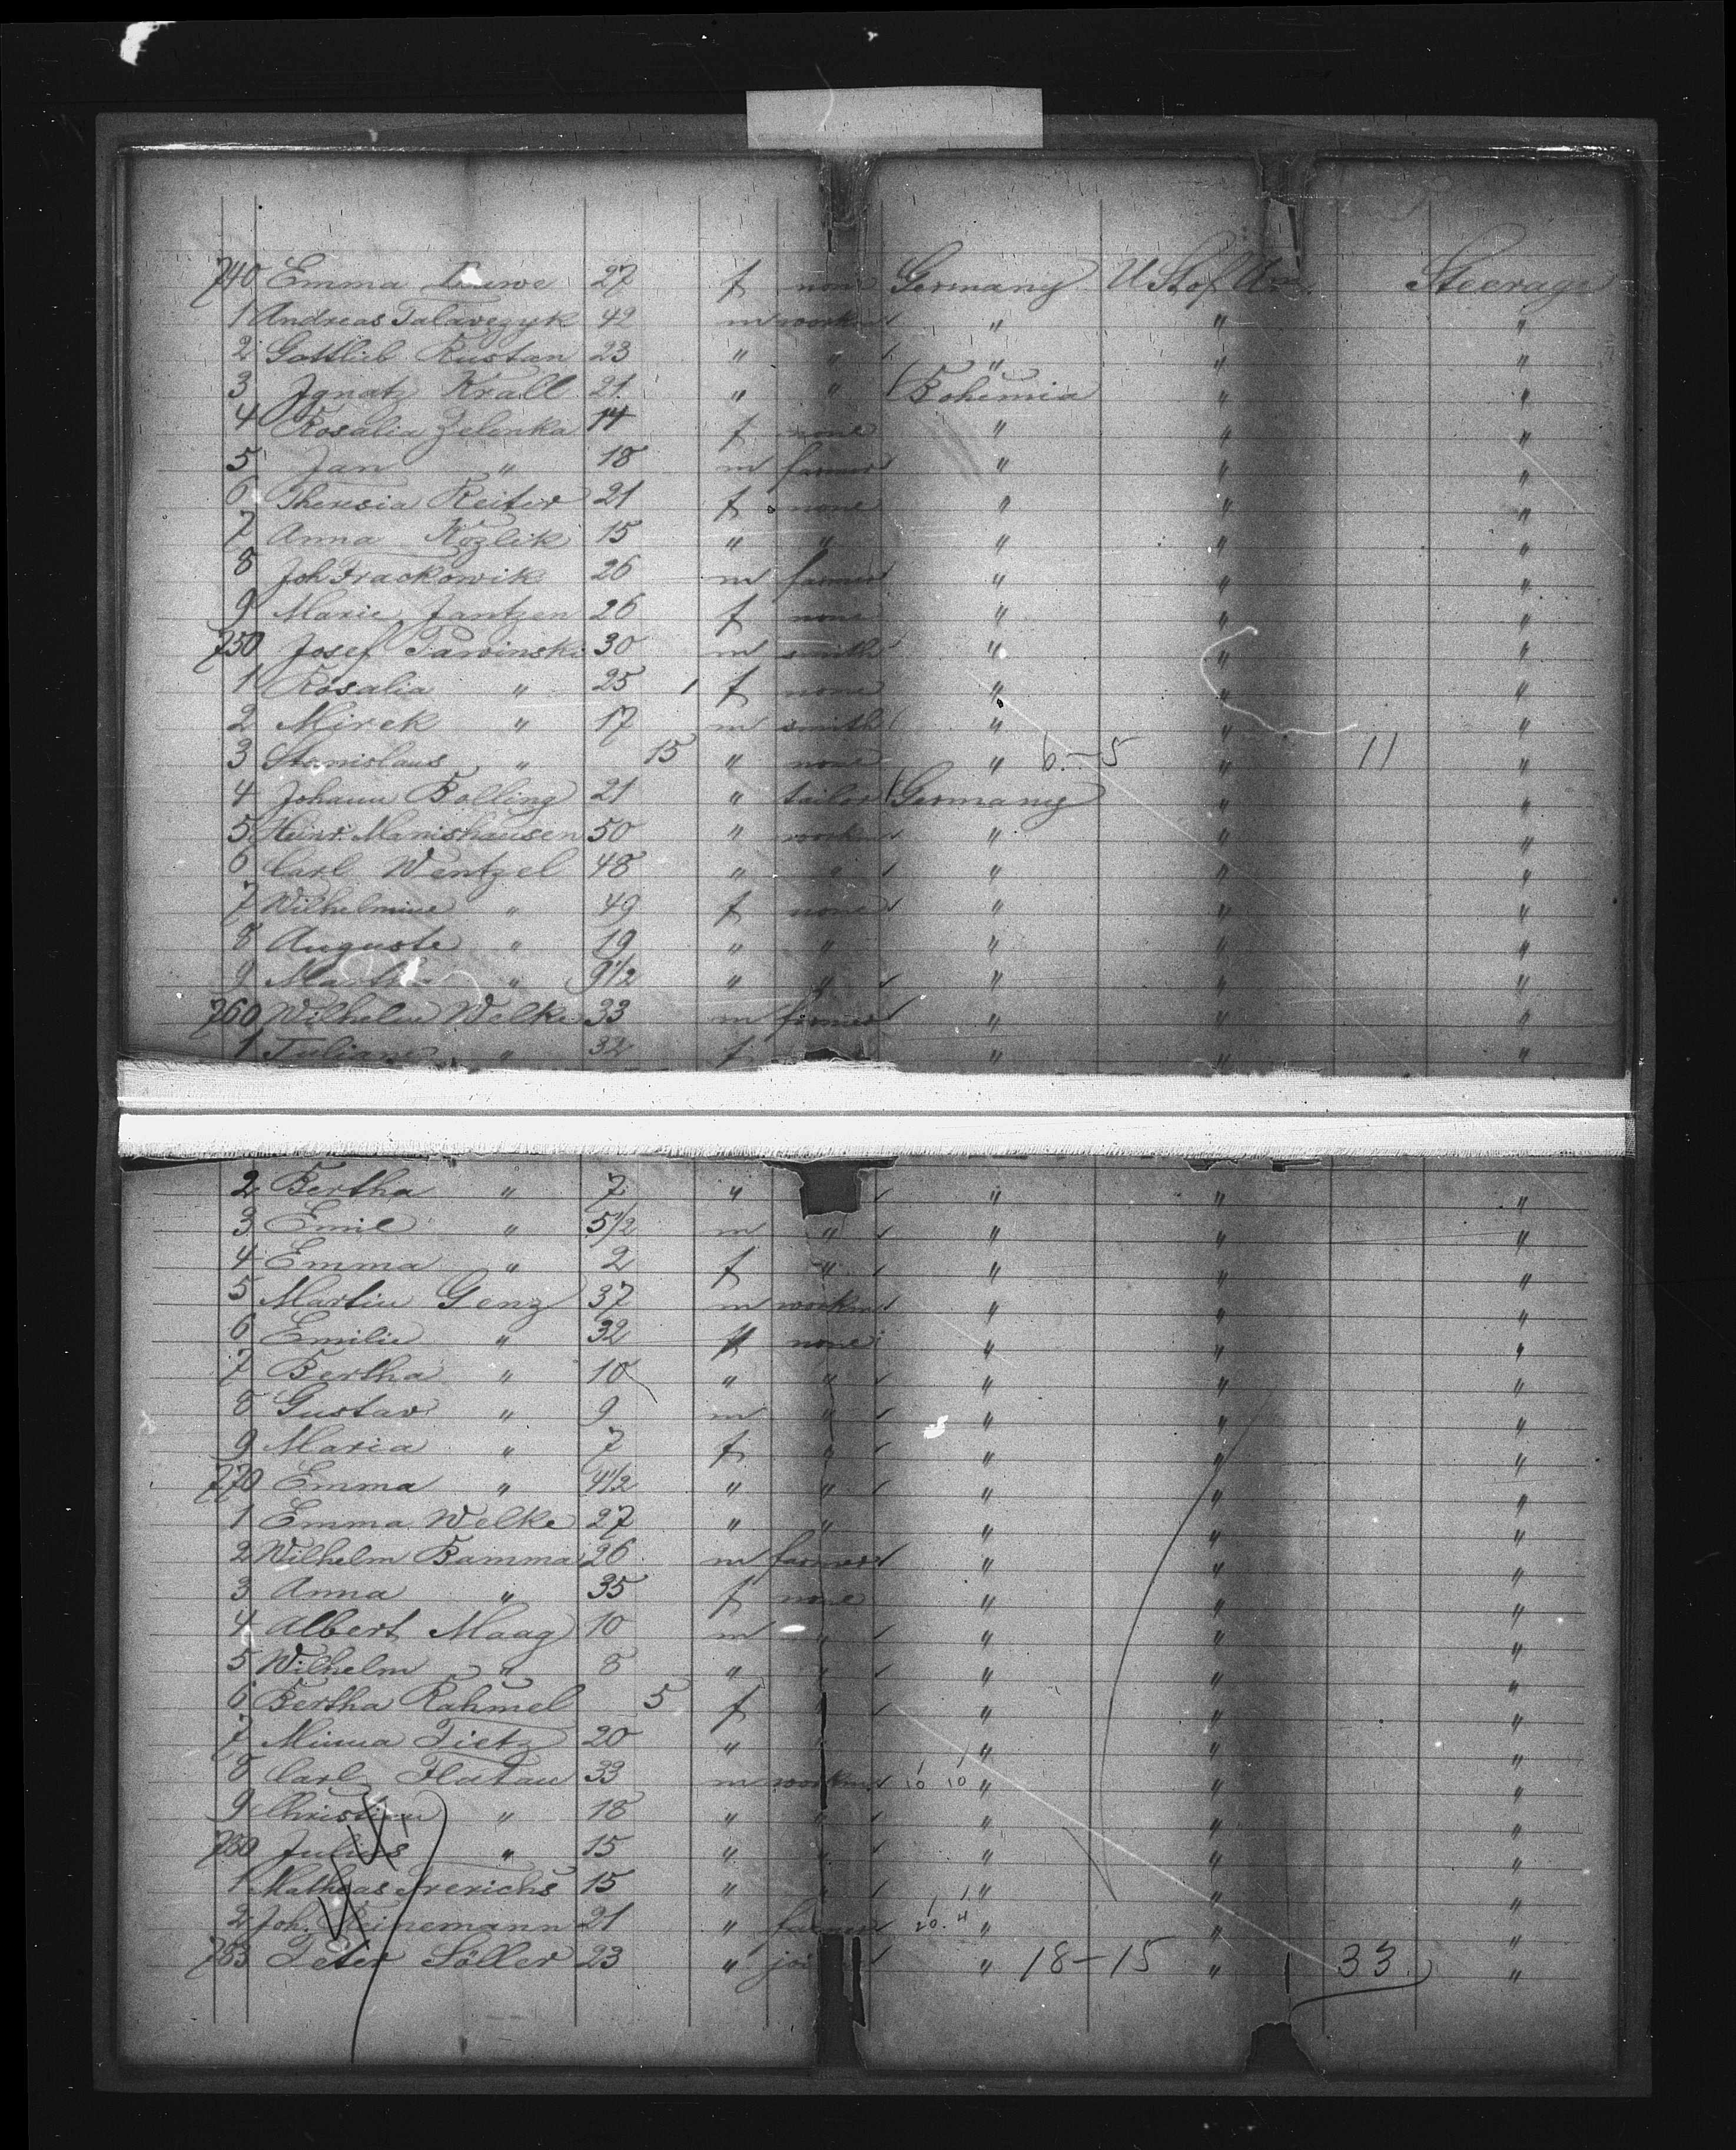 740 Emma 27 f none Germany U St of Am. Steerage
1 Andreas Talavezyk 42 m workm " " "
2 Gottlieb Rustan 23 " " " " "
3 Ignatz Krall 21 " " Bohemia " "
4 Rosalia Zelenka 14 f none " " "
5 Jan " 18 m farmer " " "
6 Theresia Reiter 21 f none " " "
7 Anna Kozlik 15 " " " " "
8 Joh Frackowik 26 m farmer " " "
9 Marie Jantzen 26 f none " " "
750 Josef Pawinski 30 m smith " " "
1 Rosalia " 25 f none " " "
2 Mirek " 17 m smith " " "
3 Stanislaus " 15 " none " 6-5 " 11 "
4 Johann Bolling 21 " tailor Germany " "
5 Heinr. Manishausen 50 " workm " " "
6 Carl Wentzel 48 " " " " "
7 Wilhelmine " 49 f none " " "
8 Auguste " 19 " " " " "
9 Martha " 9 1/2 " " " " "
760 Wilhelm Welke 33 m farmer " " "
1 Juliane " 32 f " " "
2 Bertha " 7 " " " "
3 Emil " 5 1/2 m " " " "
4 Emma " 2 f " " " "
5 Martin Genz 37 m workm " " "
6 Emilie " 32 f none " " "
7 Bertha " 10 " " " " "
8 Gustav " 9 m " " " "
9 Maria " 7 f " " " "
770 Emma " 4 1/2 " " " " "
1 Emma Welke 27 " " " " "
2 Wilhelm Bamma 26 m farmer " " "
3 Anna " 35 f none " " "
4 Albert Maag 10 m " " " "
5 Wilhelm " 8 " " " " "
6 Bertha Rahmel 5 f " " "
7 Minna Tietz 20 " " " " "
8 Carl Flatau 33 m workm 10 10 " " "
9 Christian " 18 " " " " "
780 Julius " 15 " " " "
1 Mathias Frerichs 15 " " " " "
2 Joh. Reinemann 21 " farmer 20. 4 " " "
783 Peter Söller 23 " " 18-15 " 33 "